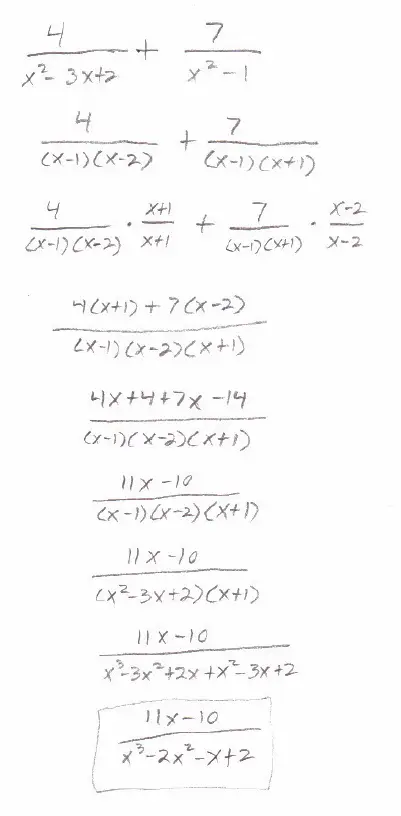 4/(x²-3x+2) + 7/(x²-1)
4/((x-1)(x-2)) + 7/((x-1)(x+1))
4/((x-1)(x-2)) · (x+1)/(x+1) + 7/((x-1)(x+1)) · (x-2)/(x-2)
(4(x+1)+7(x-2))/((x-1)(x-2)(x+1))
(4x+4+7x-14)/((x-1)(x-2)(x+1))
(11x-10)/((x-1)(x-2)(x+1))
(11x-10)/((x²-3x+2)(x+1))
(11x-10)/(x³-3x²+2x+x²-3x+2)
(11x-10)/(x³-2x²-x+2)